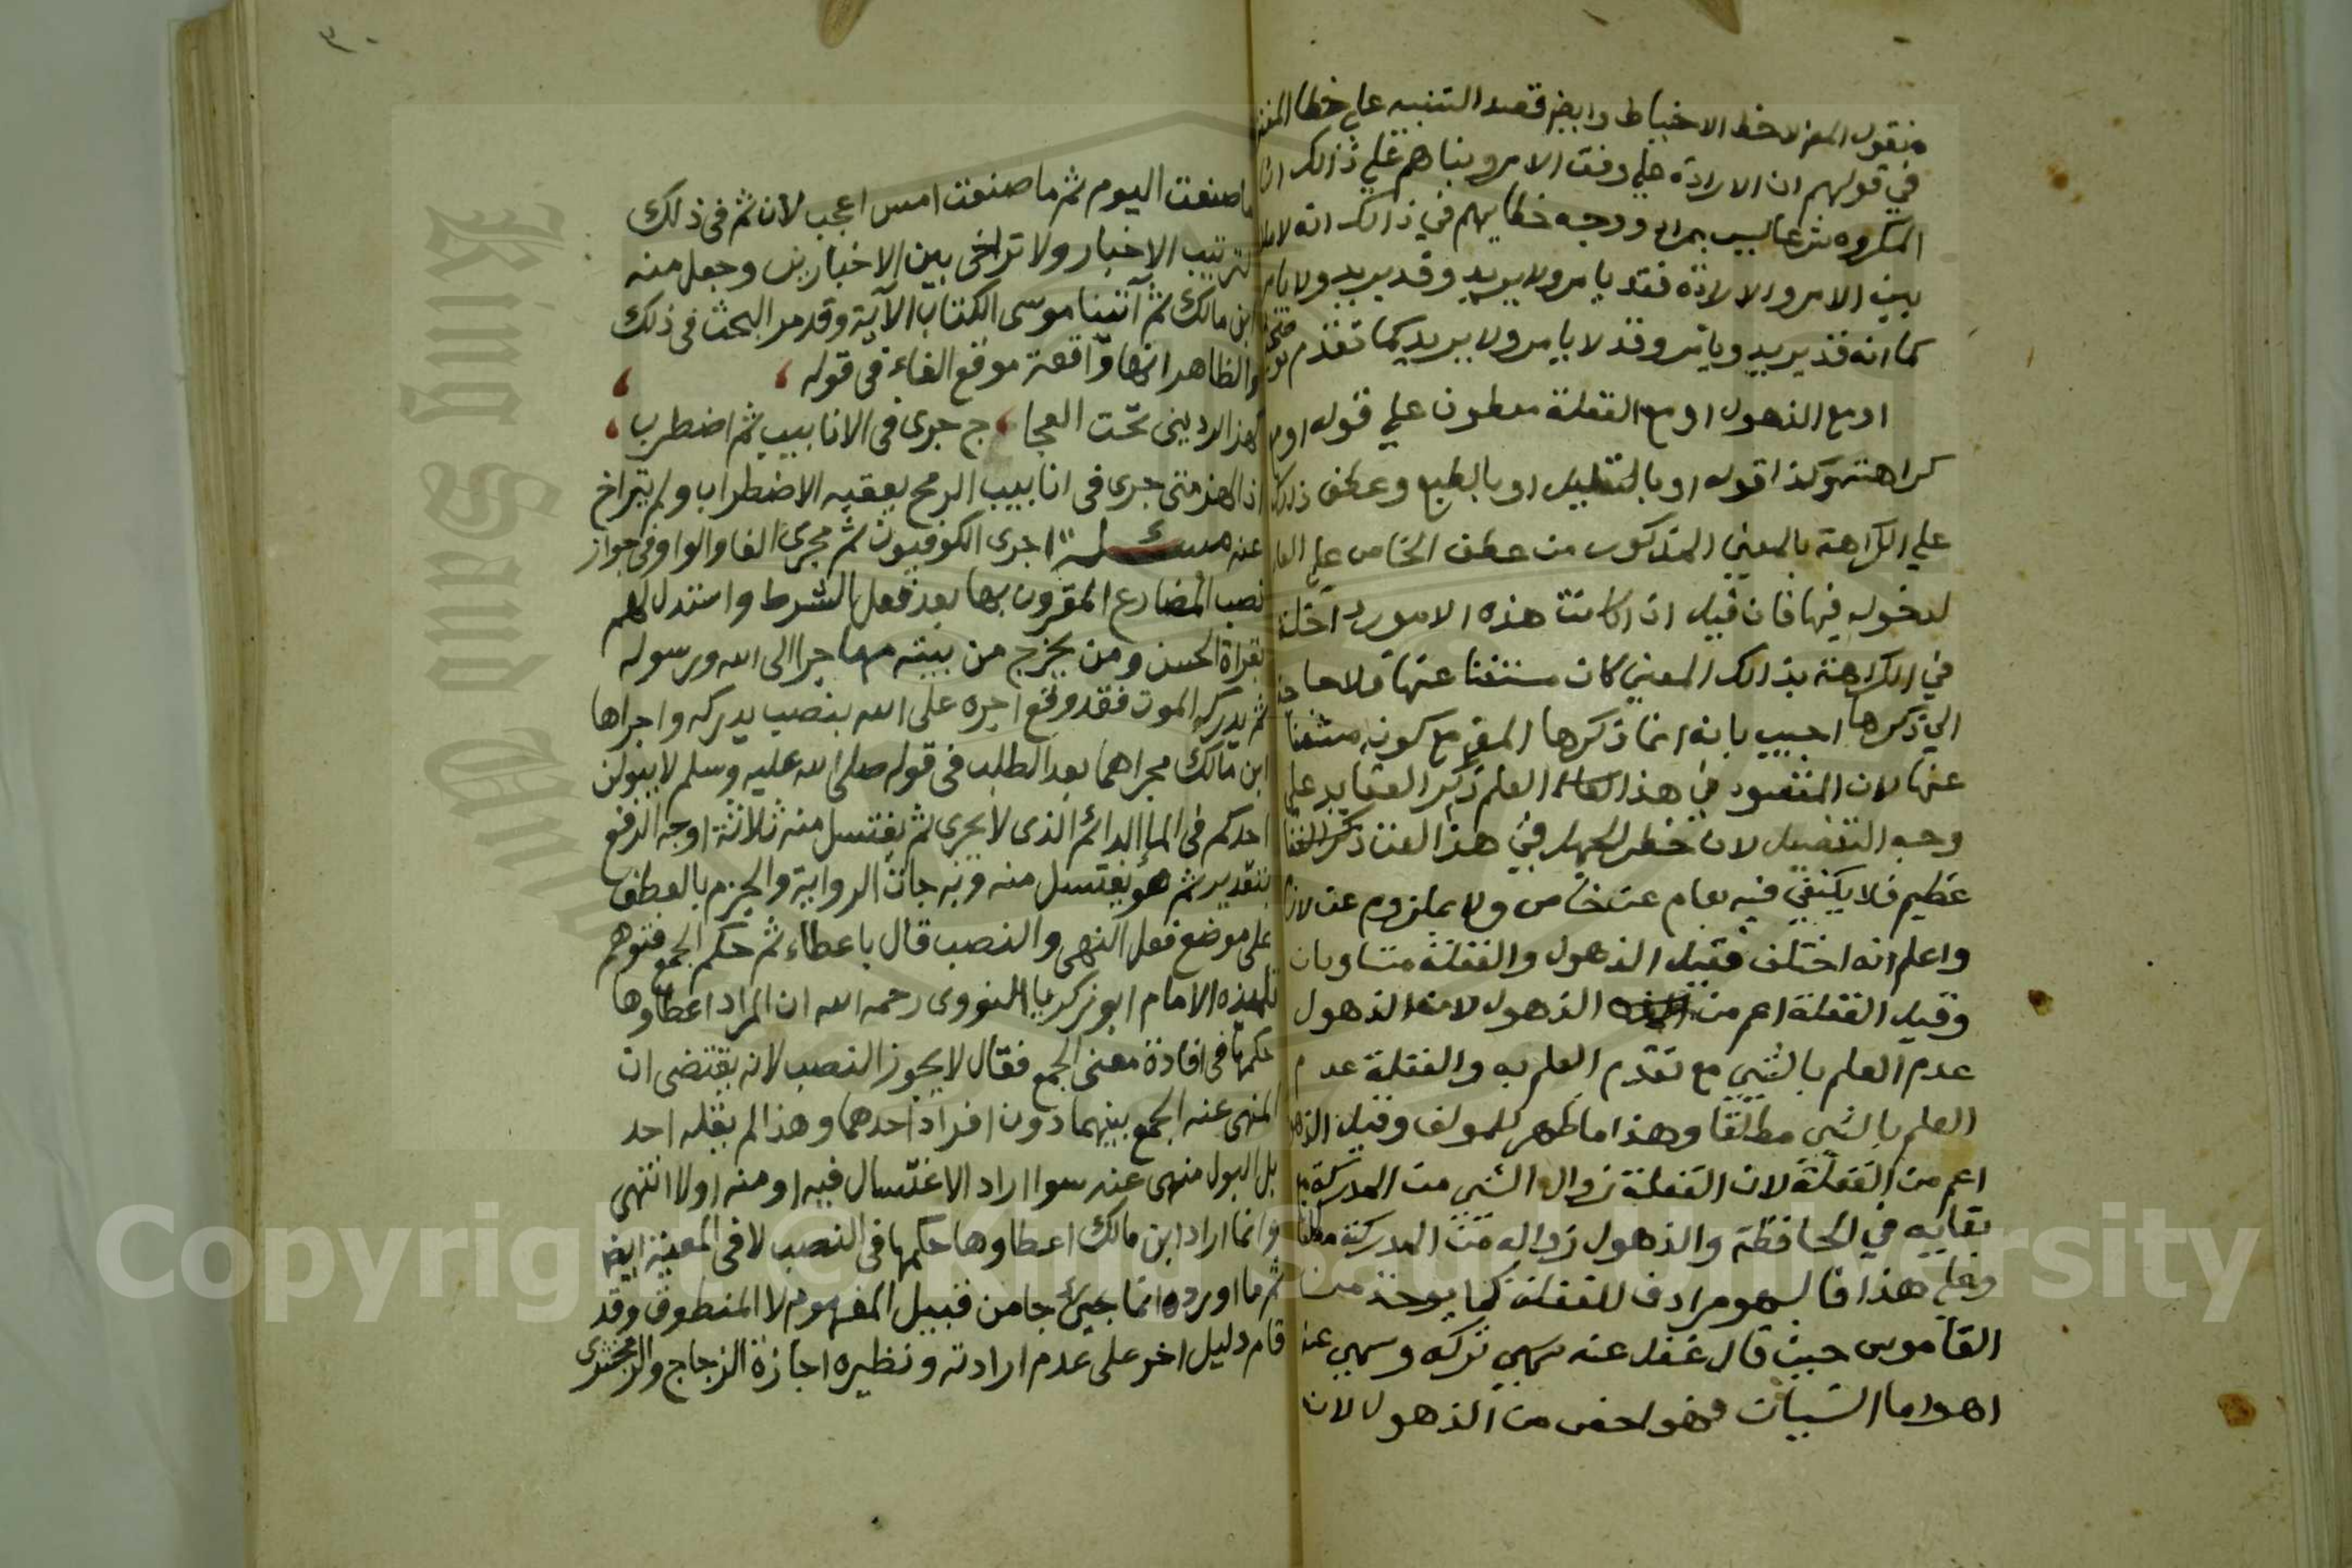 فنقول المص لاحظ الاحتياط وايضا قصد التنبيه على خطا
في قولهم ان الارادة على وفق الامر وبناهم على ذالك ان
المكروه شرعا ليس بمراد ووجه خطايهم في ذالك انه لا
بين الامر والارادة فقد يامر ولا يريد وقد يريد ولا يامر
كما انه قد يريد ويامر وقد لا يامر ولا يريد كما تقدم
او مع الذهول او مع الغفلة معطوف علي قوله او مع
كراهته وكذا قوله او بالتعليل او بالطبع وعطف ذلك
علي الكراهة بالمعني المذكور من عطف الخاص علي العام
لدخوله فيها فان قيل ان كانت هذه الامور داخلة
في الكراهة بذالك المعني كان مستغنا عنها فلا حاجة
الي ذكرها اجيب بانه انما ذكرها المص مع كونه مستغنا
عنها لان المقصود في هذا العلم ذكر العقايد علي
وجه التفصيل لان خطر الجهل في هذا الفن
عظيم فلا يكتفي فيه بعام عن خاص ولا بملزوم عن لازم
واعلم انه اختلف فقيل الذهول والغفلة متساويان
وقيل الغفلة اعم من الذهول لان الذهول
عدم العلم بالشي مع تقدم العلم به والغفلة عدم
العلم بالشي مطلقا وهذا ما ظهر للمولف وقيل الذهول
اعم من الغفلة لان الغفلة زوال الشي من المدركة مع
بقايه في الحافظة والذهول زواله من المدركة مطلقا
وعلي هذا فالسهو مرادف للغفلة كما يوخذ من
القاموس حيث قال غفل عنه سهي تركه وسهي عنه
اهـ واما النسيان فهو اخص من الذهول لان
٣٠
ما صنعت اليوم ثم ما صنعت امس اعجب لان ثم في ذلك
لترتيب الاخبار ولا تراخى بين الاخبارين وجعل منه
ابن مالك ثم آتينا موسى الكتاب الآية وقد مر البحث فى ذلك
والظاهر انها واقعة موقع الفاء في قوله
كهز الردينى تحت العجاج جرى فى الانابيب ثم اضطرب
اذ الهز متى جرى فى انابيب الرمح يعقبه الاضطراب ولم يتراخ
عنه مسئلة اجرى الكوفيون ثم مجرى الفا والواو فى جواز
نصب المضارع المقرون بها بعد فعل الشرط واستدل لهم
بقراة الحسن ومن يخرج من بيته مهاجرا الى الله ورسوله
ثم يدركه الموت فقد وقع اجره على الله بنصب يدركه واجراها
ابن مالك مجراهما بعد الطلب فى قوله صلى الله عليه وسلم لا يبولن
احدكم فى الماء الدائم الذى لا يجرى ثم يغتسل منه ثلاثة اوجه الرفع
بتقدير ثم هو يغتسل منه وبه جات الرواية والجزم بالعطف
على موضع فعل النهى والنصب قال باعطاء ثم حكم الجمع فتوهم
تلميذه الامام ابو زكريا النووى رحمه الله ان المراد اعطاوها
حكمها فى افادة معنى الجمع فقال لا يجوز النصب لانه يقتضى ان
المنهى عنه الجمع بينهما دون افراد احدهما وهذا لم يقله احد
بل البول منهى عنه سوا اراد الاغتسال فيه او منه اولا انتهى
وانما اراد ابن مالك اعطاوها حكمها فى النصب لا فى المعية ايضا
ثم ما اورده انما جا من قبيل المفهوم لا المنطوق وقد
قام دليل اخر على عدم ارادته ونظيره اجازة الزجاج والزمخشرى
Copyright © King Saud University
King Saud University